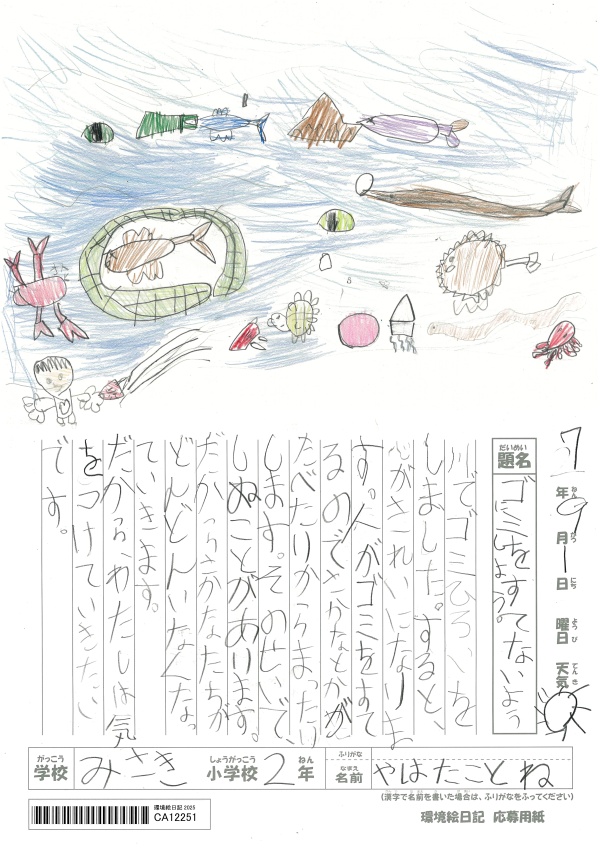 7年9月1日 曜日 天気
ねん がつ にち ようび てんき
だいめい
題名
ゴミをすてないよう
にしよう。
川でゴミひろいを
しました。すると、
心がきれいになりま
す。人がゴミをすて
るのでさかなとかが
たべたりからまったり
します。そのせいで、
しぬことがあります。
だからさかなたちが
どんどんいなくなっ
ていきます。
だから、わたしは気
をつけていきたい
です。
がっこう しょうがっこう ねん ふりがな
学校 みさき 小学校 2年 なまえ 名前 やはたことね
(漢字で名前を書いた場合は、ふりがなをふってください)
環境絵日記 2025
CA12251
環境絵日記 応募用紙